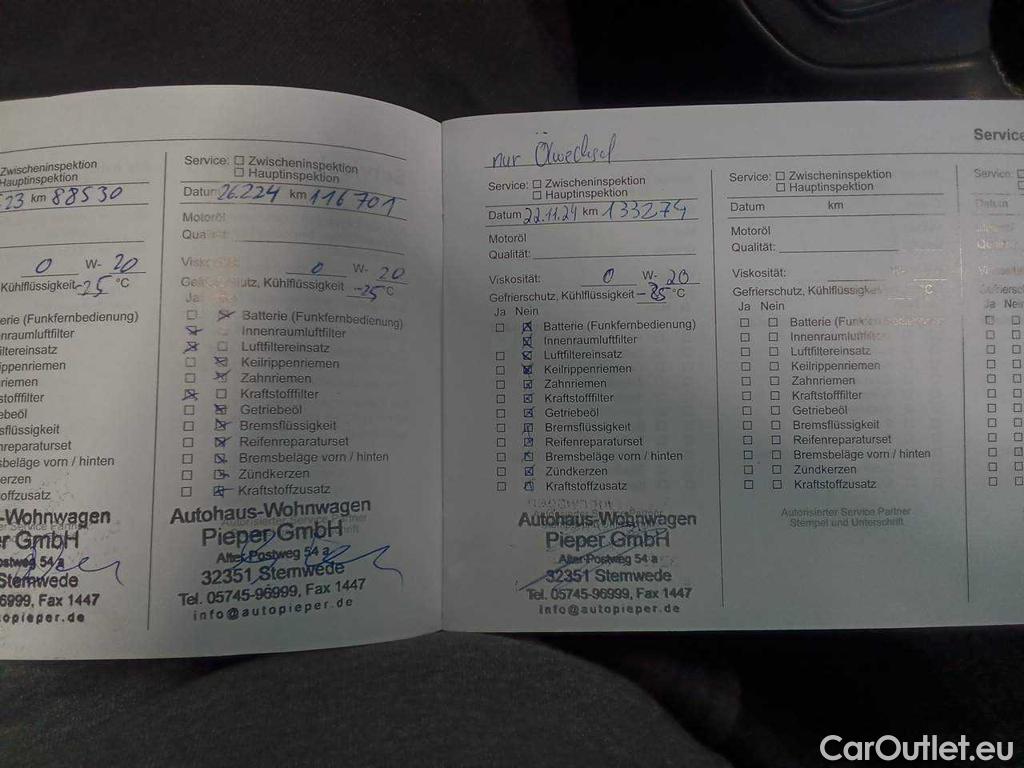 Zwischeninspektion
Hauptinspektion
23 km 88530
0 W- 20
Kühlflüssigkeit -25 °C
terie (Funkfernbedienung)
nenraumluftfilter
filtereinsatz
rippenriemen
nriemen
stofffilter
eöl
msflüssigkeit
nreparaturset
msbeläge vorn / hinten
kerzen
toffzusatz
-Wohnwagen
er GmbH
ostweg 54 a
Stemwede
96999, Fax 1447
opieper.de
Service: ☐ Zwischeninspektion
☐ Hauptinspektion
Datum 26.2.24 km 116 701
Motoröl
Qualität:
Viskosität: 0 W- 20
Gefrierschutz, Kühlflüssigkeit -25 °C
Ja
Batterie (Funkfernbedienung)
Innenraumluftfilter
Luftfiltereinsatz
Keilrippenriemen
Zahnriemen
Kraftstofffilter
Getriebeöl
Bremsflüssigkeit
Reifenreparaturset
Bremsbeläge vorn / hinten
Zündkerzen
Kraftstoffzusatz
Autohaus-Wohnwagen
Pieper GmbH
Alter Postweg 54 a
32351 Stemwede
Tel. 05745-96999, Fax 1447
info@autopieper.de
Service
nur Ölwechsel
Service: ☐ Zwischeninspektion
☐ Hauptinspektion
Datum 22.11.24 km 133274
Motoröl
Qualität:
Viskosität: 0 W- 20
Gefrierschutz, Kühlflüssigkeit °C
Ja Nein
Batterie (Funkfernbedienung)
Innenraumluftfilter
Luftfiltereinsatz
Keilrippenriemen
Zahnriemen
Kraftstofffilter
Getriebeöl
Bremsflüssigkeit
Reifenreparaturset
Bremsbeläge vorn / hinten
Zündkerzen
Kraftstoffzusatz
Autohaus-Wohnwagen
Pieper GmbH
Alter Postweg 54 a
32351 Stemwede
Tel. 05745-96999, Fax 1447
info@autopieper.de
Service: ☐ Zwischeninspektion
☐ Hauptinspektion
Datum km
Motoröl
Qualität:
Viskosität:
Gefrierschutz, Kühlflüssigke °C
Ja Nein
Batterie (Funk
Innenraumluftfilter
Luftfiltereinsatz
Keilrippenriemen
Zahnriemen
Kraftstofffilter
Getriebeöl
Bremsflüssigkeit
Reifenreparaturset
Bremsbeläge vorn / hinten
Zündkerzen
Kraftstoffzusatz
Autorisierter Service Partner
Stempel und Unterschrift
Service: ☐
Datum
Ja Nein
CarOutlet.eu